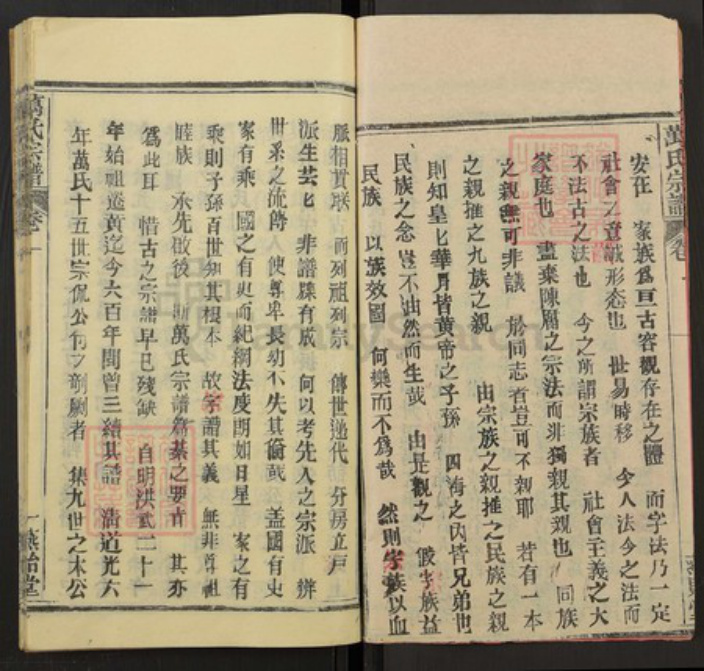 萬氏宗譜 卷一
安在 家族爲亘古客觀存在之體 而宗法乃一定
社會之意識形态也 世易時移 今人法今之法而
不法古之法也 今之所謂宗族者 社會主義之大
家庭也 盡棄陳腐之宗法而非獨親其親也 同族
之親無可非議 於同志者豈可不親耶 若有一本
之親推之九族之親 由宗族之親推之民族之親
則知皇匕華胄皆黃帝之子孫 四海之内皆兄弟也
民族之念豈不油然而生哉 由是觀之 假宗族益
民族 以族效國 何樂而不爲哉 然則宗族以血
脈相貫联 而列祖列宗 傳世递代 分房立戶
派生芸匕 非譜牒有成 何以考先人之宗派 辨
世系之流傳 使尊卑長幼不失其倫哉 盖國有史
家有乘 國之有史而紀綱法度朗如日星 家之有
乘則子孫百世知其根本 故宗譜其義 無非尊祖
睦族 承先啟後 斯萬氏宗譜篇綦之要旨 其亦
爲此耳 惜古之宗譜早已残缺 自明洪武二十一
年始祖遷黄迄今六百年間曾三續其譜 清道光六
年萬氏十五世宗侃公付之剞劂者 集九世之木公
萬氏宗譜 卷一
一 燕怡堂